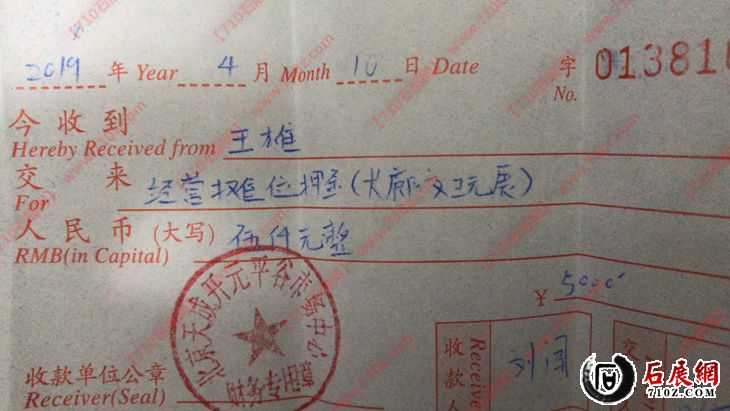 2019 年 Year 4 月 Month 10 日 Date 字 No. 013810
今收到 Hereby Received from 王雄
交来 For 经营摊位押金(大厰文玩展)
人民币(大写) RMB(in Capital) 伍仟元整
¥ 5000
北京天成开元平谷市场中心
收款单位公章 Receiver(Seal)
收款人 Receive
交
石展網
710Z.COM